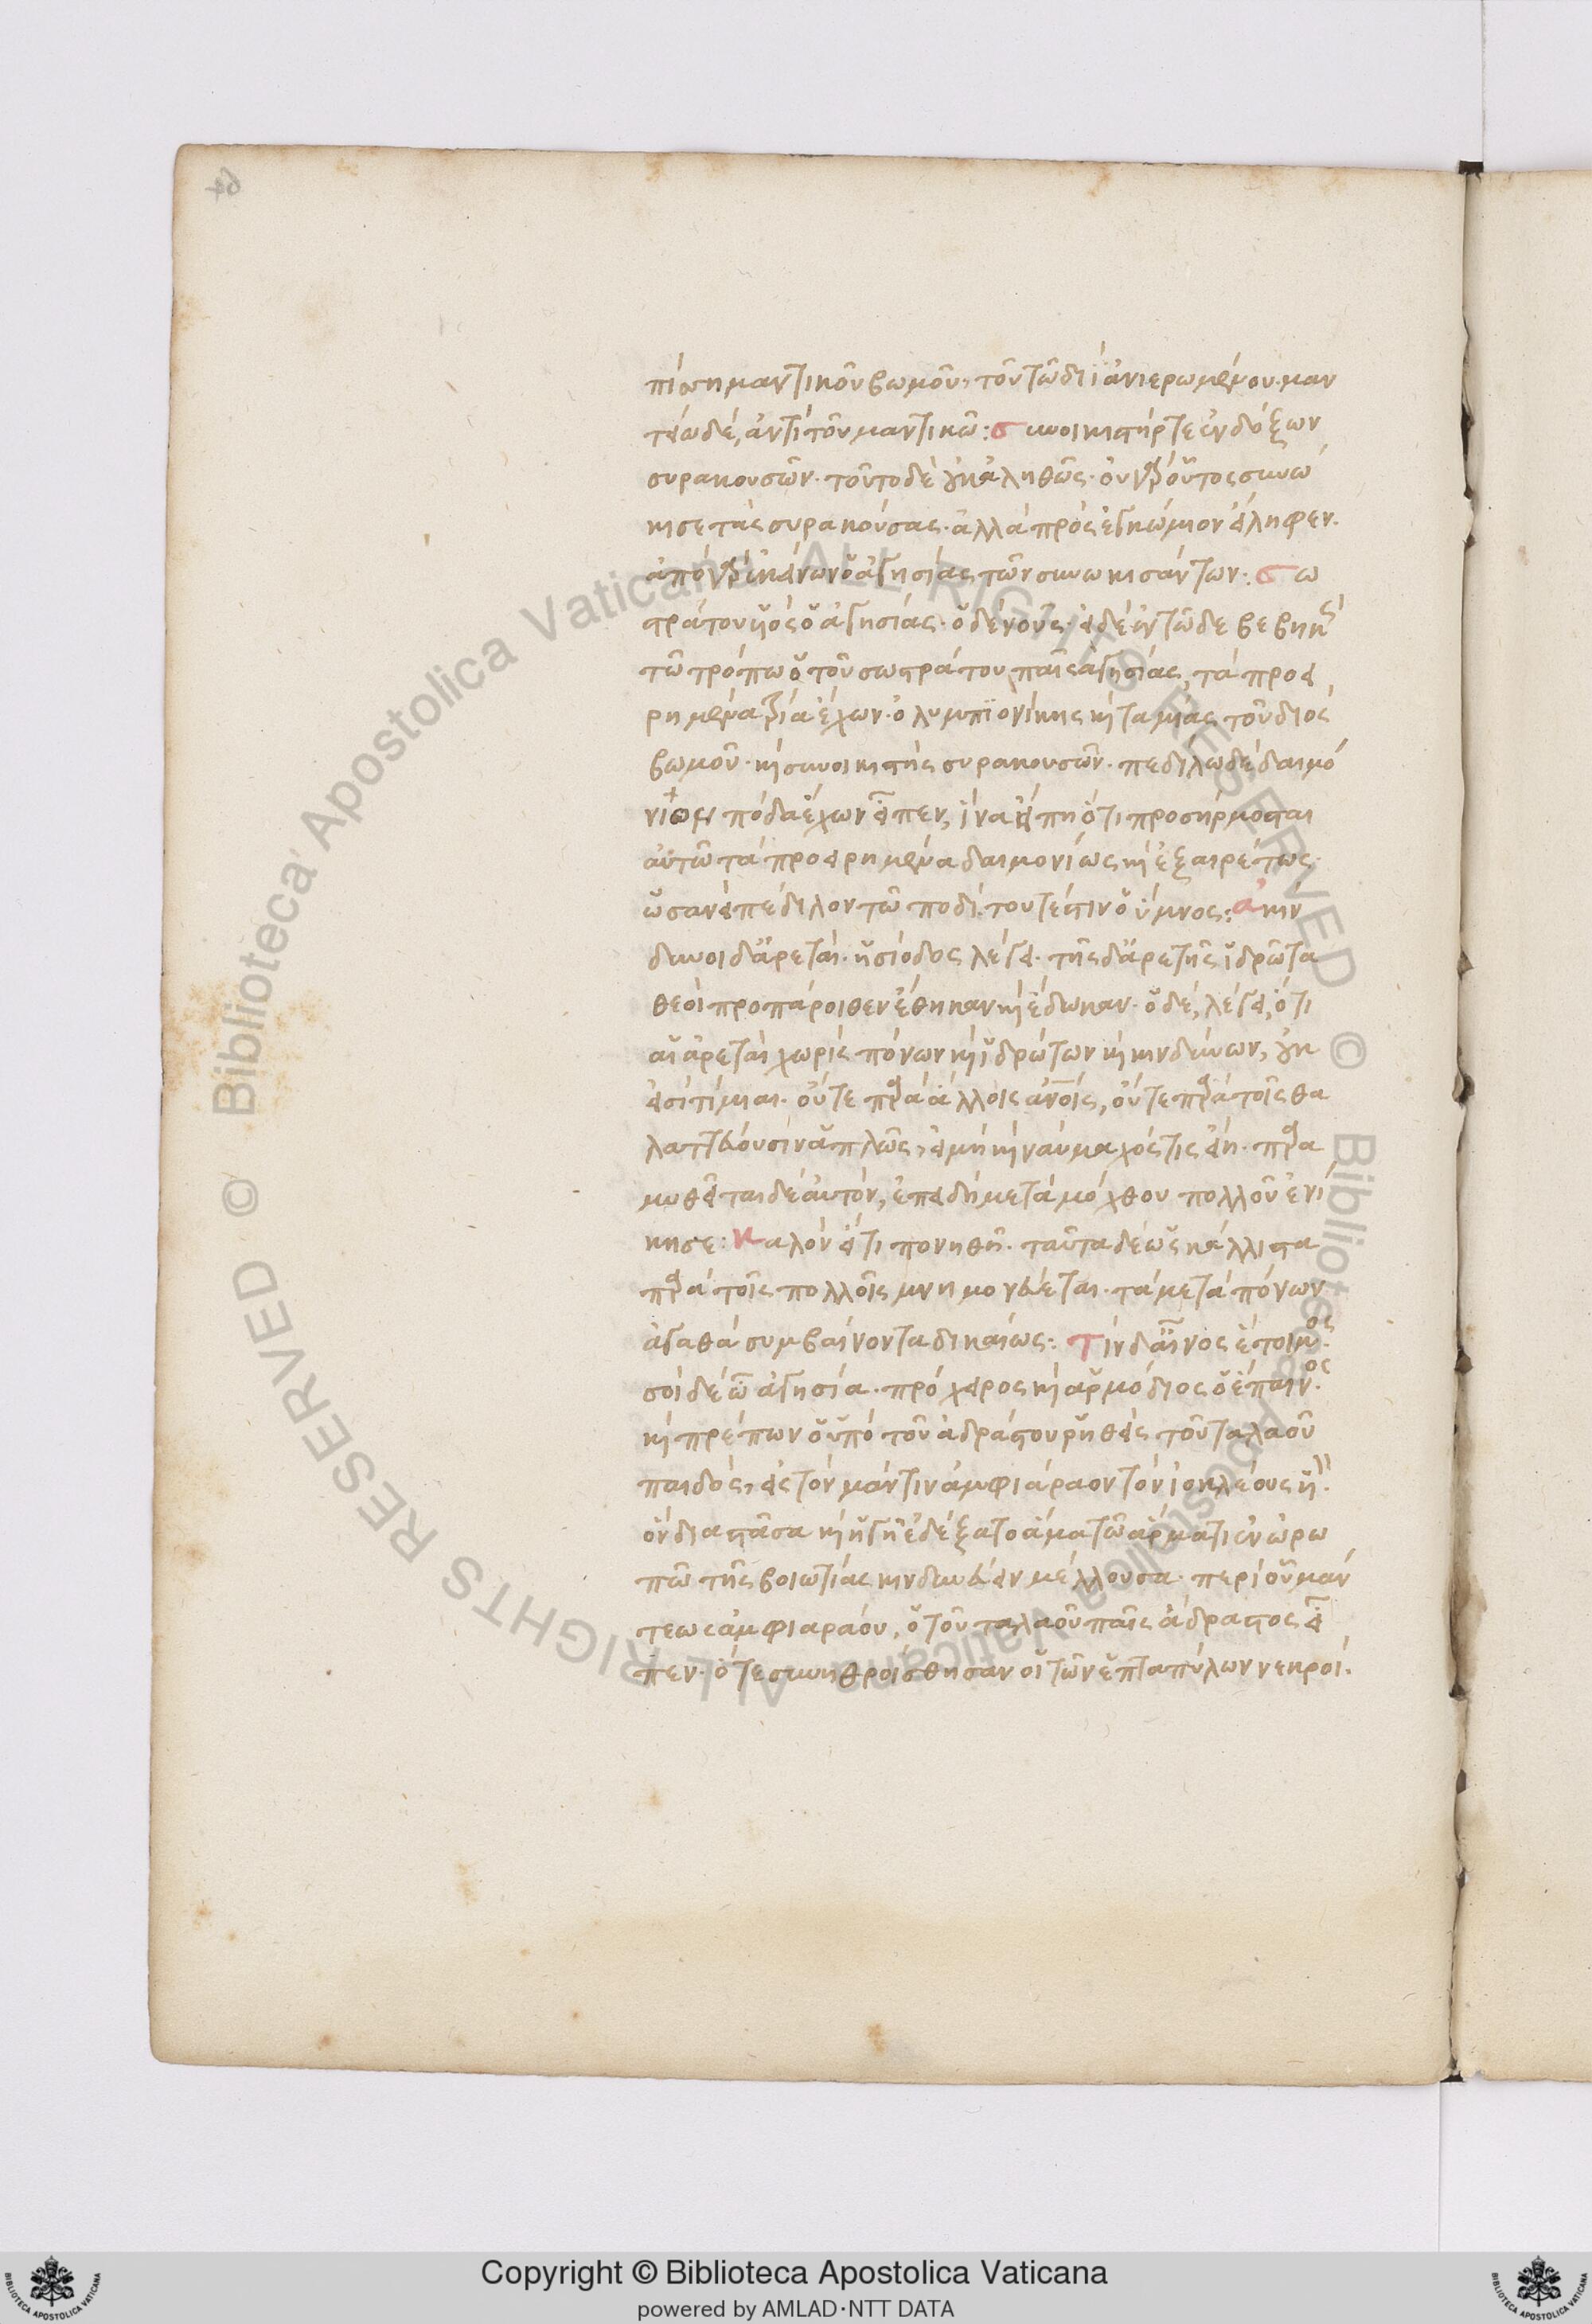 πίση μαντικοῦ βωμοῦ, τοῦ τῶ διῒ ἀνιερωμένου. μαν
τείω δέ, ἀντὶ τοῦ μαντικῶ: συνοικιστήρ τε ἐνδόξων
συρακουσῶν. τοῦτο δὲ οὐκ ἀληθῶς. οὐ γὰρ οὗτος συνώ
κισε τὰς συρακούσας. ἀλλὰ πρὸς ἐγκώμιον εἴληφεν.
ἀπὸ γὰρ ἐκείνων ὁ ἁγησίας τῶν συνωκισάντων: σω
στράτου υἱὸς ὁ ἁγησίας. ὁ δὲ νοῦς. εἰ δὲ ἐν τῶδε βεβηκὼς
τῶ τρόπω ὁ τοῦ σωστράτου παῖς ἁγησίας, τὰ προει
ρημένα τρία ἔχων. ὀλυμπιονίκης καὶ ταμίας τοῦ διὸς
βωμοῦ. καὶ συνοικιστὴς συρακουσῶν. πεδίλω δὲ δαιμό
νιον πόδα ἔχων εἶπεν, ἵνα εἴπη ὅτι προσήρμοσται
αὐτῶ τὰ προειρημένα δαιμονίως καὶ ἐξαιρέτως.
ὡσανεὶ πέδιλον τῶ ποδὶ. τουτέστιν ὁ ὕμνος: ἀκίν
δυνοι δ' ἀρεταὶ. ἡσίοδος λέγει. τῆς δ' ἀρετῆς ἱδρῶτα
θεοὶ προπάροιθεν ἔθηκαν καὶ ἔδωκαν. ὁ δέ, λέγει, ὅτι
αἱ ἀρεταὶ χωρὶς πόνων καὶ ἱδρώτων καὶ κινδύνων, οὐκ
εἰσὶ τίμιαι. οὔτε παρὰ ἄλλοις ἀνοις, οὔτε παρὰ τοῖς θα
λαττεύουσιν ἁπλῶς, εἰ μὴ καὶ ναύμαχός τις εἴη. παρα
μυθεῖται δὲ αὐτόν, ἐπειδὴ μετὰ μόχθου πολλοῦ ἐνί
κησε: καλὸν εἴ τι πονηθῆ. ταῦτα δὲ ὡς κάλλιστα
παρὰ τοῖς πολλοῖς μνημονεύεται. τὰ μετὰ πόνων
ἀγαθὰ συμβαίνοντα δικαίως: τὶν δ' αἶνος ἑτοῖμος.
σοὶ δὲ ὦ ἁγησία. πρόχειρος καὶ ἁρμόδιος ὁ ἔπαινος.
καὶ πρέπων ὁ ὑπὸ τοῦ ἀδράστου ῥηθεὶς τοῦ ταλαοῦ
παιδός, εἰς τὸν μάντιν ἀμφιάραον τὸν ἰοκλέους υἱὸν.
ὃν διαστᾶσα καὶ ἡ γῆ ἐδέξατο ἅμα τῶ ἅρματι ἐν ὠρω
πῶ τῆς βοιωτίας κινδυνεύειν μέλλουσα. περὶ οὗ μάν
τεως ἀμφιαράου, ὁ τοῦ ταλαοῦ παῖς ἄδραστος εἶ
πεν. ὅτε συνηθροίσθησαν οἱ τῶν ἑπταπύλων νεκροὶ.
Copyright © Biblioteca Apostolica Vaticana
powered by AMLAD·NTT DATA